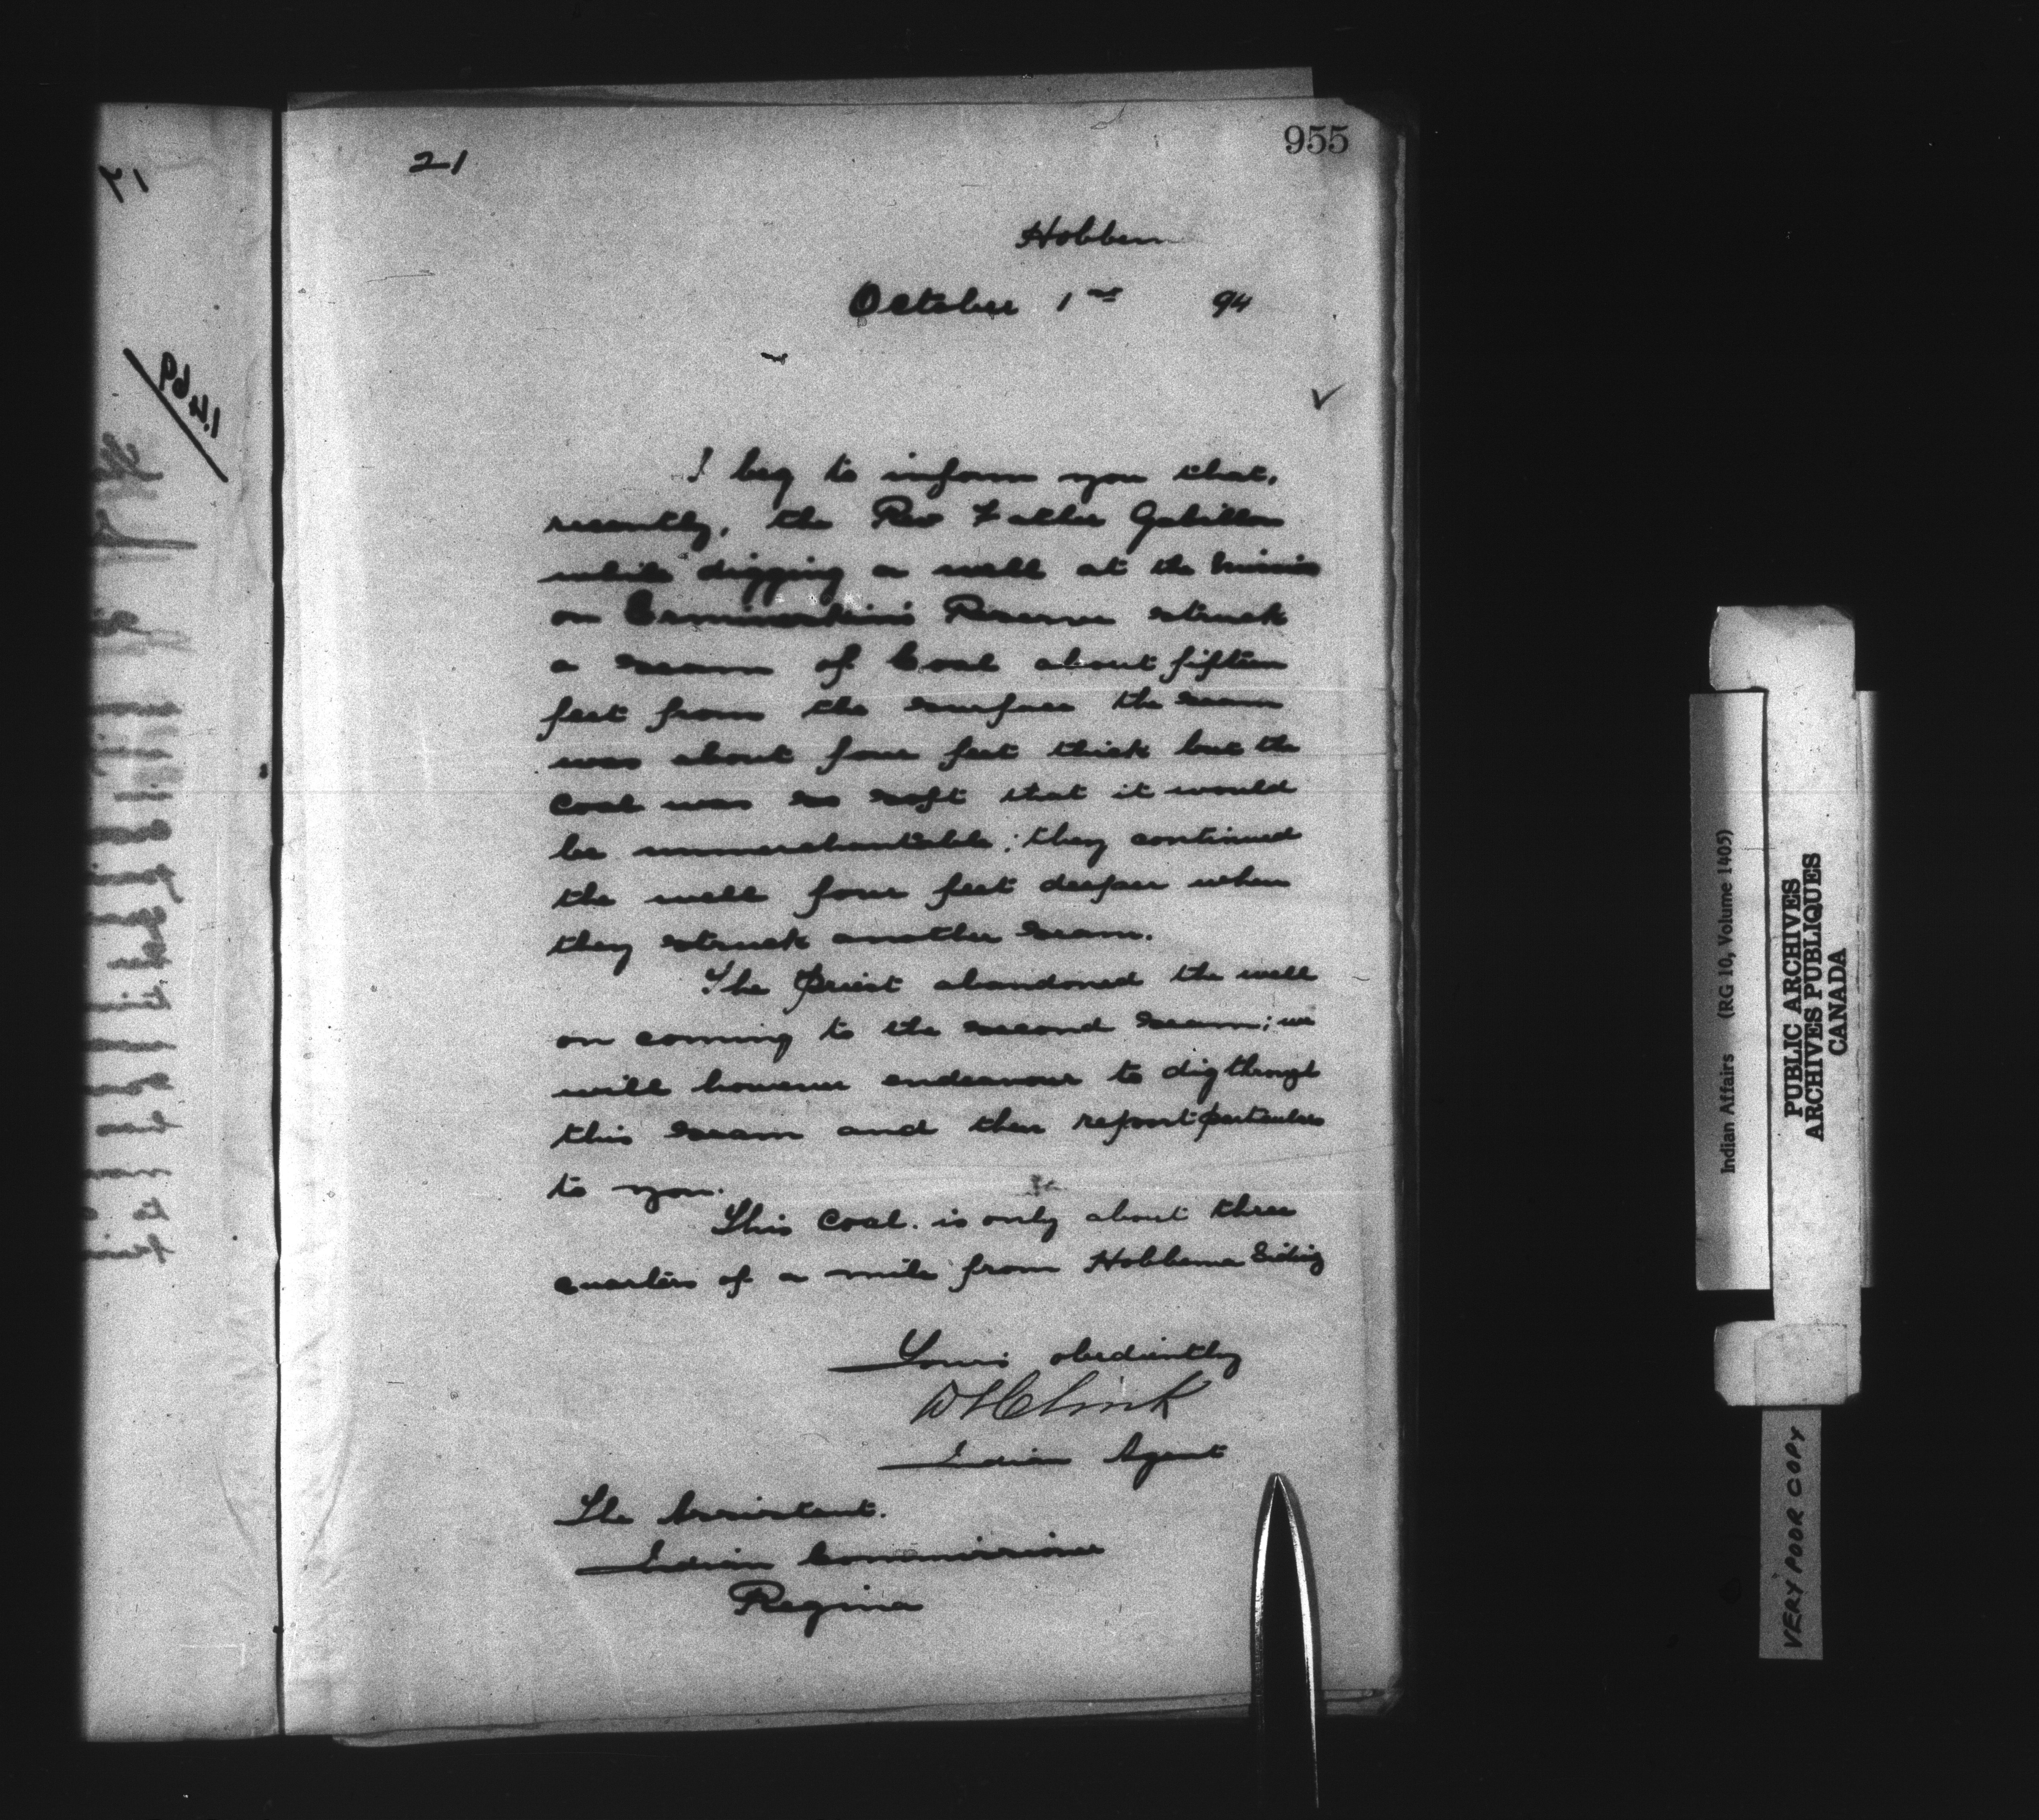 955
21
Hobbem
October 1st 94
I beg to inform you that,
recently, the Rev Father Gabillon
while digging a well at the Missio
on Ermineskin's Reserve struck
a seam of Coal about fifteen
feet from the surface the seam
was about four feet thick but the
Coal was so soft that it would
be unmerchantable; they continued
the well four feet deeper when
they struck another seam.
The Priest abandoned the well
on coming to the second seam; we
will however endeavour to dig through
this seam and then report particulars
to you.
This Coal is only about three
quarters of a mile from Hobbema Siding
Yours obediently
D L Clink
Indian Agent
The Assistant.
Indian Commissioner
Regina
1469
Indian Affairs (RG 10, Volume 1405)
PUBLIC ARCHIVES
ARCHIVES PUBLIQUES
CANADA
VERY POOR COPY